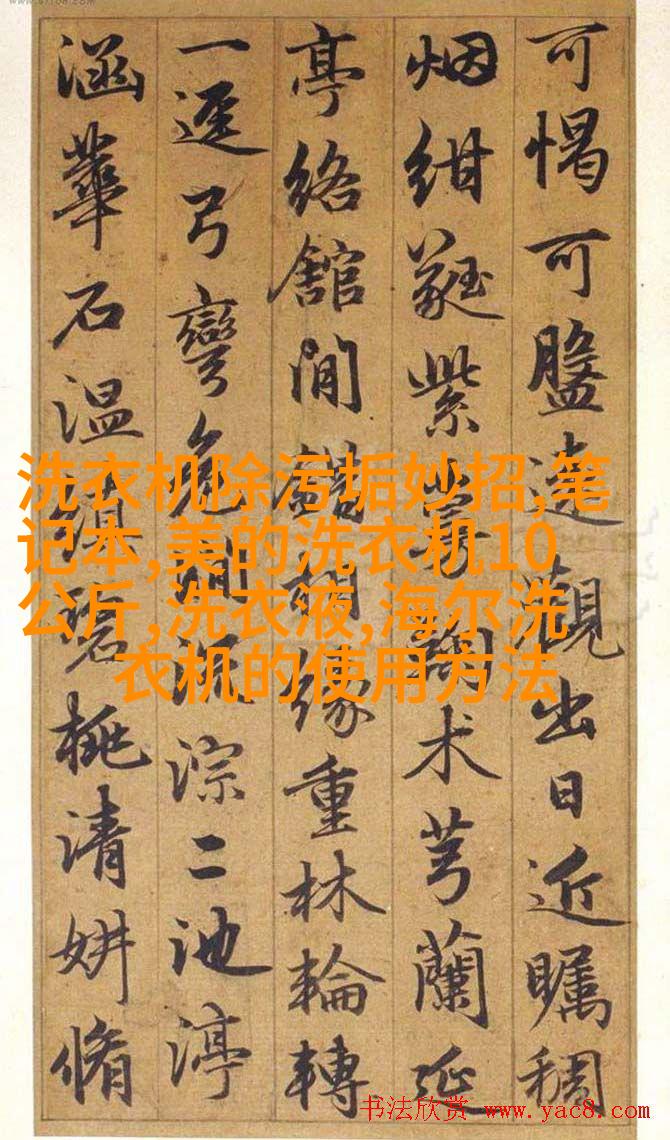 可愒可盤遠觀出日近矚稠
烟紺蕤紫萼术芎蘭延
亭絡館閒緣重林輪轉
一逕弓彎危淙二池渟
涵華石温碧桃清妍脩
洗衣机除污垢妙招,笔
记本,美的洗衣机10
公斤,洗衣液,海尔洗
衣机的使用方法
书法欣赏 www.yac8.com